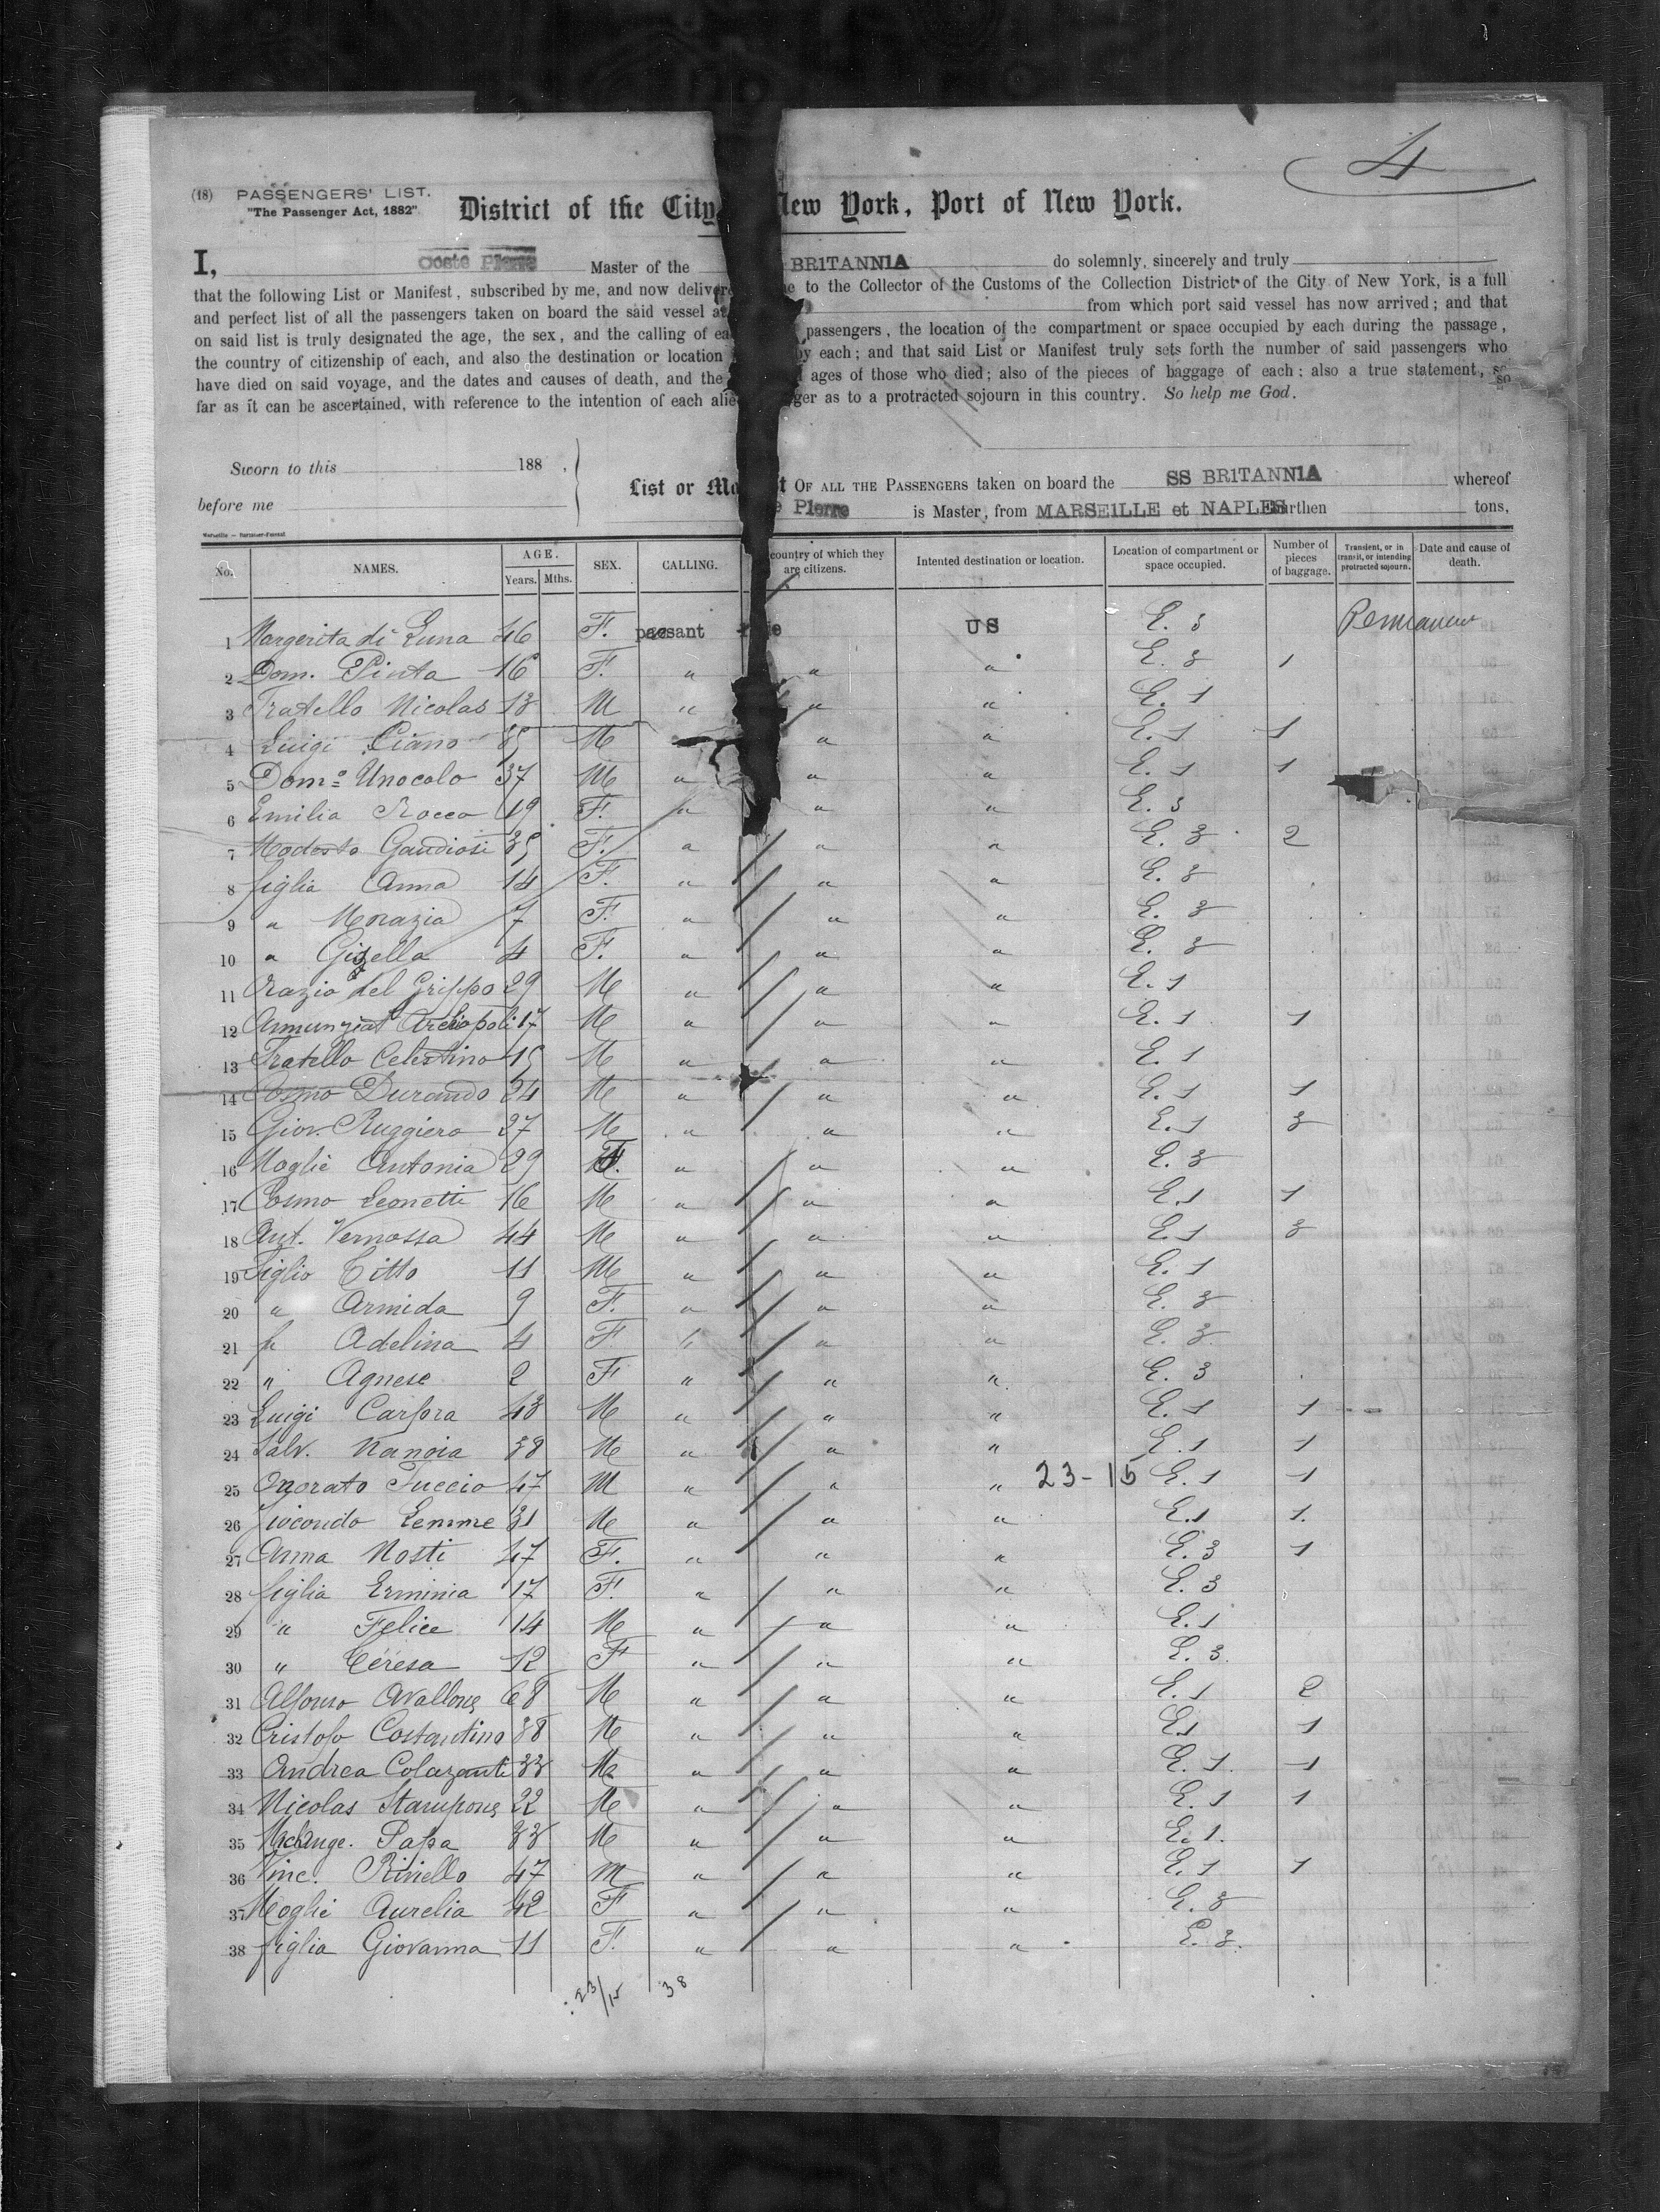 4
(18) PASSENGERS' LIST.
"The Passenger Act, 1882"
District of the City New York, Port of New York.
I, Coste Pierre Master of the BRITANNIA do solemnly, sincerely and truly
that the following List or Manifest, subscribed by me, and now delivere to the Collector of the Customs of the Collection District of the City of New York, is a full
and perfect list of all the passengers taken on board the said vessel at from which port said vessel has now arrived; and that
on said list is truly designated the age, the sex, and the calling of ea passengers, the location of the compartment or space occupied by each during the passage,
the country of citizenship of each, and also the destination or location by each; and that said List or Manifest truly sets forth the number of said passengers who
have died on said voyage, and the dates and causes of death, and the ages of those who died; also of the pieces of baggage of each: also a true statement, so
far as it can be ascertained, with reference to the intention of each alie ger as to a protracted sojourn in this country. So help me God.
Sworn to this 188 .
before me
List or Ma t OF ALL THE PASSENGERS taken on board the SS BRITANNIA whereof
e Pierre is Master, from MARSEILLE et NAPLES burthen tons,
No. NAMES. AGE. Years. Mths. SEX. CALLING. country of which they are citizens. Intented destination or location. Location of compartment or space occupied. Number of pieces of baggage. Transient, or in transit, or intending protracted sojourn. Date and cause of death.
1 Margerita di Luna 46 F. paesant US E. 3 Permanent
2 Dom. Pinta 16 F. " " " E. 3 1
3 Fratello Nicolas 13 M " " " E. 1
4 Luigi Ciano 35 M " " E. 1 1
5 Dom: Unocolo 37 M " " " E. 1 1
6 Emilia Rocco 19 F. " " " E. 3
7 Modesto Gaudiosi 35 F. " " " E. 3 2
8 figlia Anna 14 F. " " " E. 3
9 " Morazia 7 F. " " " E. 3
10 " Gizella 4 F. " " " E. 3
11 Orazio del Grippo 29 M " " " E. 1
12 Annunziat 17 M " " " E. 1 1
13 Fratello Celestino 15 M " " " E. 1
14 Cosmo Durando 24 M " " " E. 1 1
15 Giov. Ruggiero 27 M " " " E. 1 3
16 Moglie Antonia 29 F. " " " E. 3
17 Cosmo Leonetti 16 M " " " E. 1 1
18 Ant. Vernossa 44 M " " " E. 1 3
19 Figlio Titto 11 M " " " E. 1
20 " Armida 9 F. " " " E. 3
21 Adelina 4 F " " " E. 3
22 " Agnese 2 F " " " E. 3
23 Luigi Carfora 43 M " " " E. 1 1
24 Salv. Nanoia 38 M " " " E. 1 1
25 Onorato Tuccio 47 M " " " 23-15 E. 1 1
26 Giocondo Lemme 31 M " " " E. 1 1.
27 Anna Nosti 47 F. " " " E. 3 1
28 figlia Erminia 17 F. " " " E. 3
29 " Felice 14 M " " " E. 1
30 " Teresa 12 F " " " E. 3.
31 Alfonso Avallone 68 M " " " E. 1 2
32 Cristofo Costantino 38 M " " " E. 1 1
33 Andrea Colazanti 33 M " " " E. 1. 1
34 Nicolas Stampone 22 M " " " E. 1 1
35 Papa 33 M " " " E. 1.
36 Vinc. Riniello 47 M " " " E. 1 1
37 Moglie Aurelia 42 F " " " E. 3
38 figlia Giovanna 11 F. " " " E. 3.
23/15 38